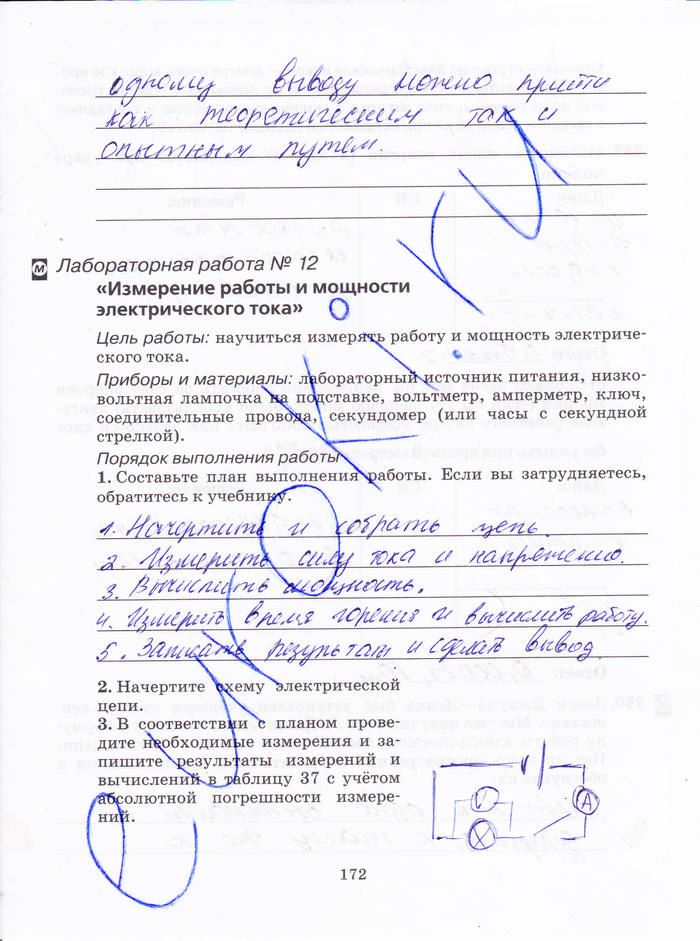 одному выводу можно прийти
как теоретическим так и
опытным путем.
м Лабораторная работа № 12
«Измерение работы и мощности
электрического тока»
Цель работы: научиться измерять работу и мощность электриче-
ского тока.
Приборы и материалы: лабораторный источник питания, низко-
вольтная лампочка на подставке, вольтметр, амперметр, ключ,
соединительные провода, секундомер (или часы с секундной
стрелкой).
Порядок выполнения работы
1. Составьте план выполнения работы. Если вы затрудняетесь,
обратитесь к учебнику.
1. Начертить и собрать цепь.
2. Измерить силу тока и напряжение.
3. Вычислить мощность.
4. Измерить время горения и вычислить работу.
5. Записать результаты и сделать вывод
2. Начертите схему электрической
цепи.
3. В соответствии с планом прове-
дите необходимые измерения и за-
пишите результаты измерений и
вычислений в таблицу 37 с учётом
абсолютной погрешности измере-
ний.
V
A
172